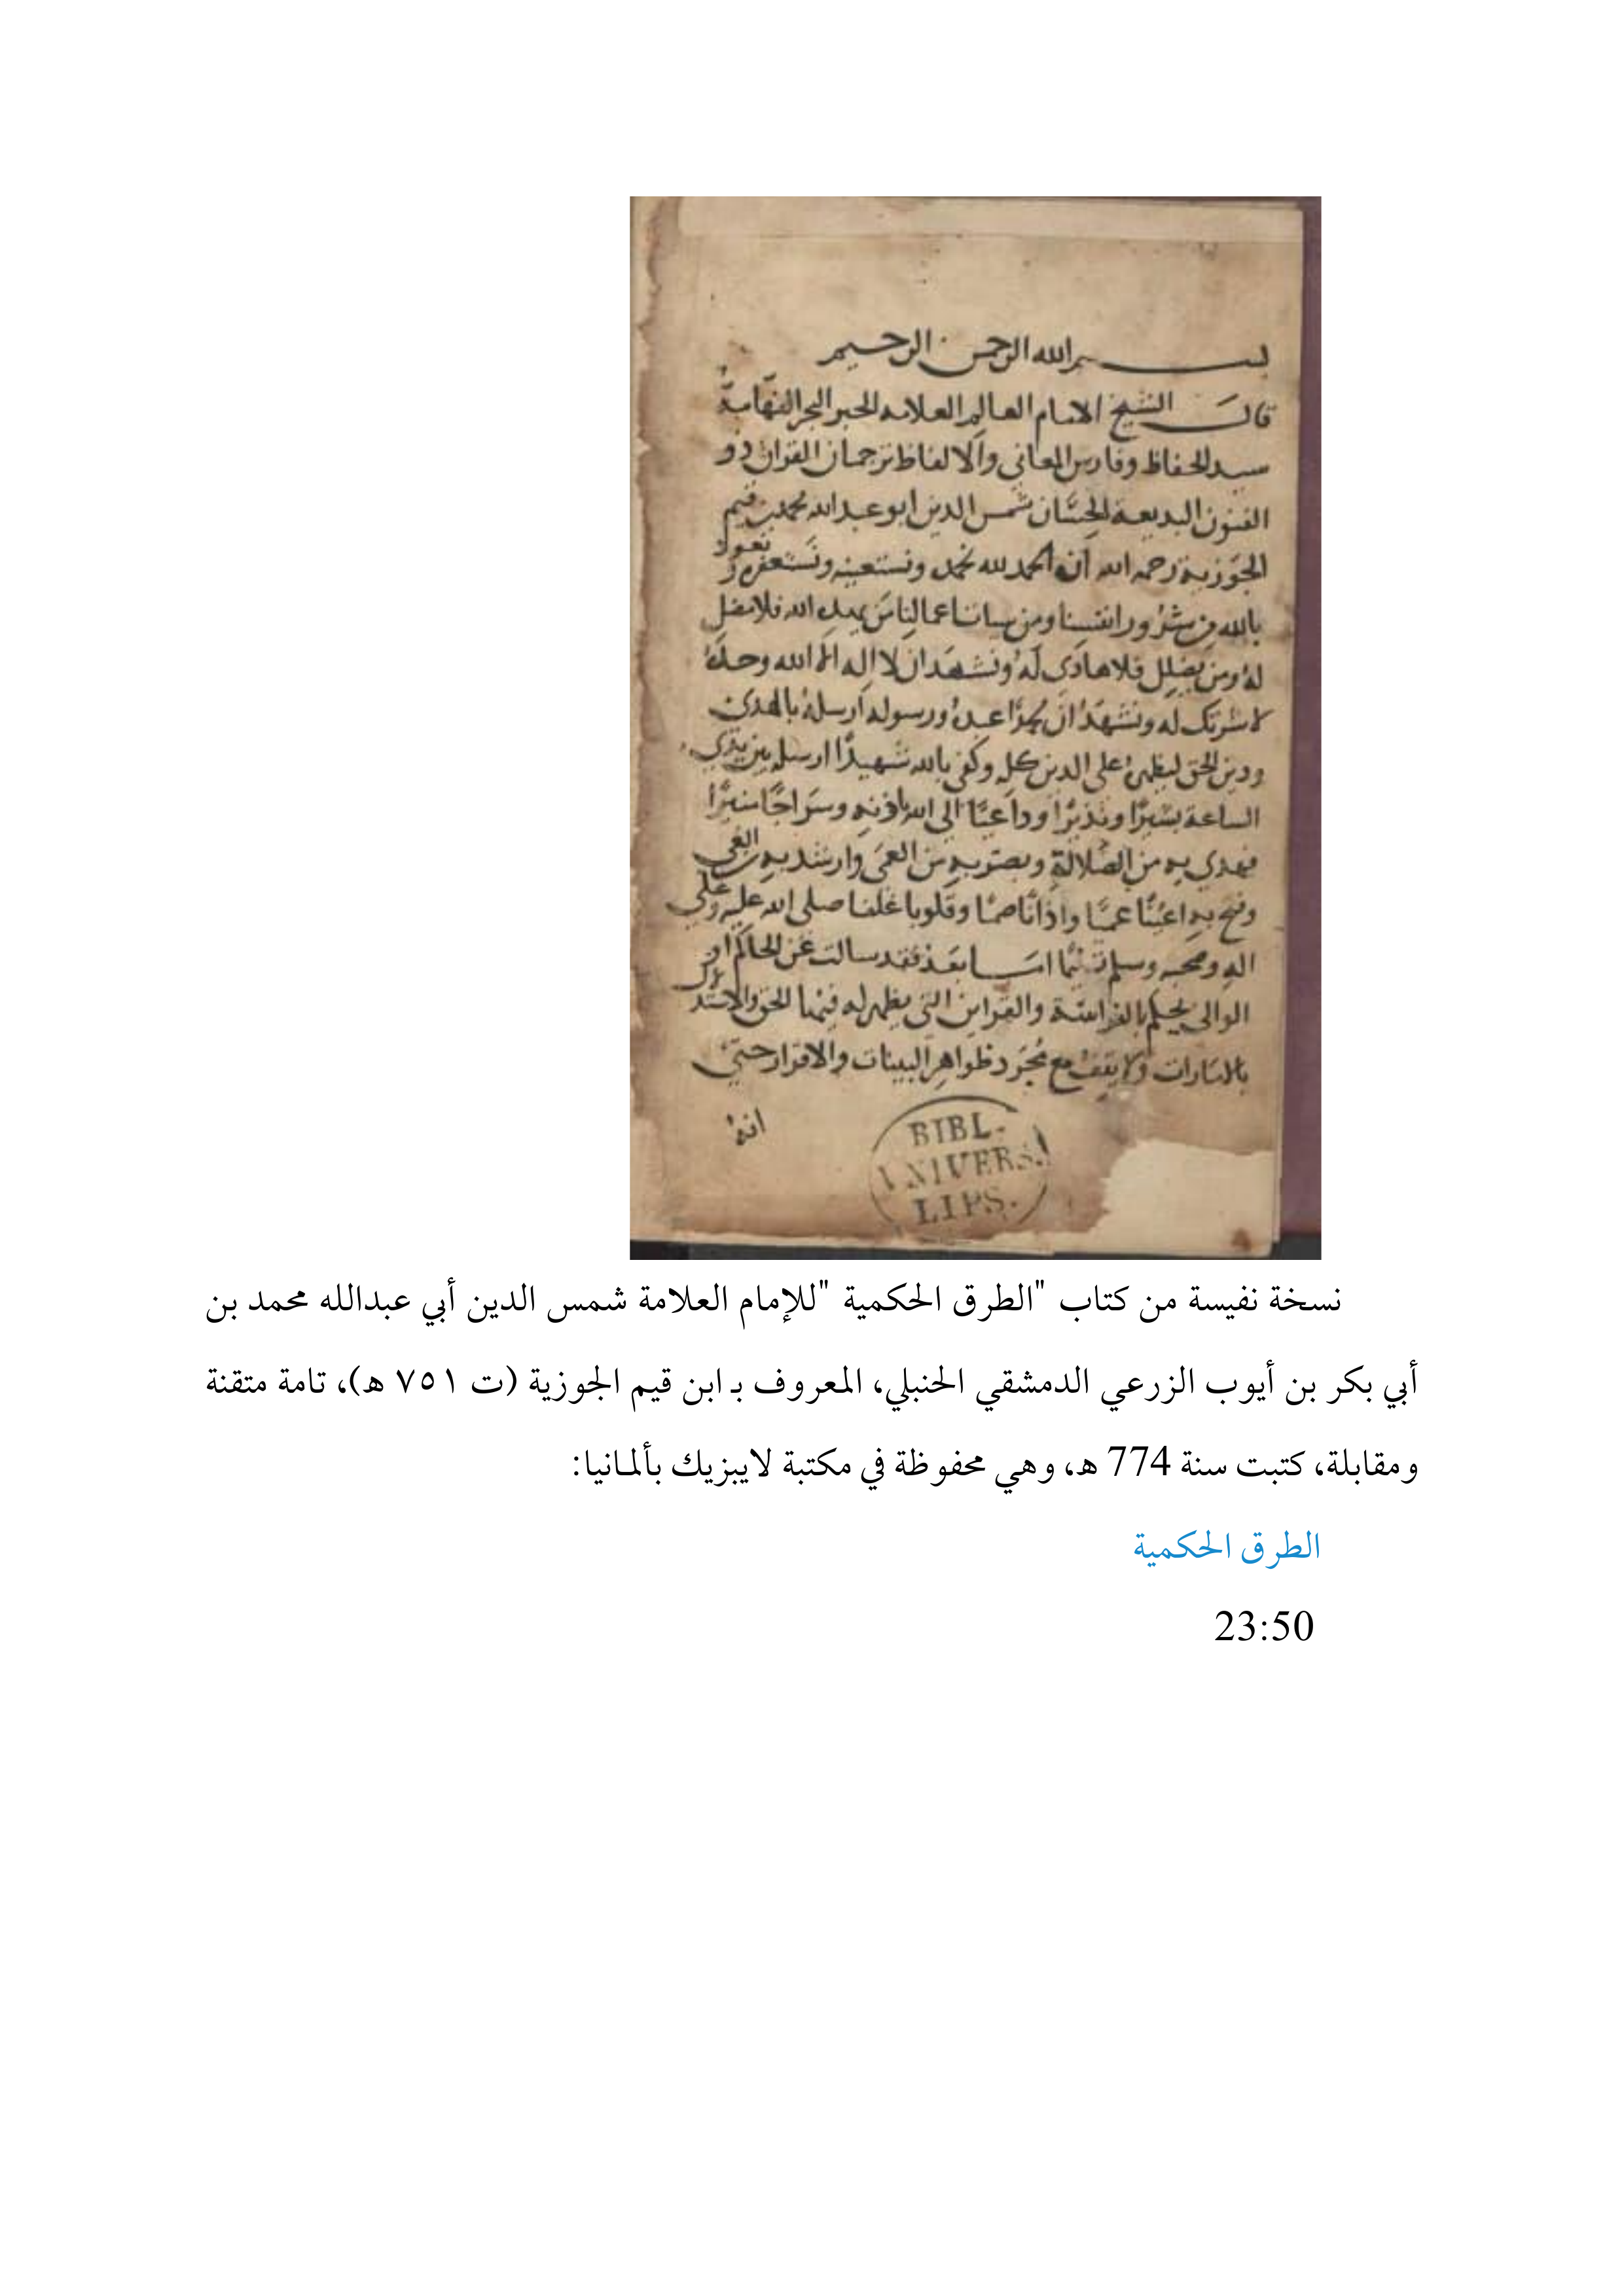 بسم الله الرحمن الرحيم
قال الشيخ الامام العالم العلامه الحبر البحر الفهامة
سيد الحفاظ وفارس المعاني والالفاظ ترجمان القران ذو
الفنون البديعة الحسان شمس الدين ابو عبد الله محمد بن قيم
الجوزية رحمه الله ان الحمد لله نحمده ونستعينه ونستغفره ونعوذ
بالله من شرور انفسنا ومن سيات اعمالنا من يهد الله فلا مضل
له ومن يضلل فلا هادى له ونشهد ان لا اله الا الله وحده
لا شريك له ونشهد ان محمدا عبده ورسوله ارسله بالهدى
ودين الحق ليظهره على الدين كله وكفى بالله شهيدا ارسله بين يدي
الساعة بشيرا ونذيرا وداعيا الى الله باذنه وسراجا منيرا
فهدي به من الضلالة وبصر به من العمى وارشد به من الغي
وفتح به اعينا عميا واذانا صما وقلوبا غلفا صلى الله عليه وعلي
اله وصحبه وسلم تسليما اما بعد فقد سالت عن الحاكم او
الوالى يحكم بالفراسة والقراين التي يظهر له فيها الحق والاستدلال
بالامارات ولا يقف مع مجرد ظواهر البينات والاقرار حتى
انه
BIBL.
VNIVERS.
LIPS.
نسخة نفيسة من كتاب "الطرق الحكمية "للإمام العلامة شمس الدين أبي عبدالله محمد بن
أبي بكر بن أيوب الزرعي الدمشقي الحنبلي، المعروف بـ ابن قيم الجوزية (ت ٧٥١ هـ)، تامة متقنة
ومقابلة، كتبت سنة 774 هـ، وهي محفوظة في مكتبة لايبزيك بألمانيا:
الطرق الحكمية
23:50